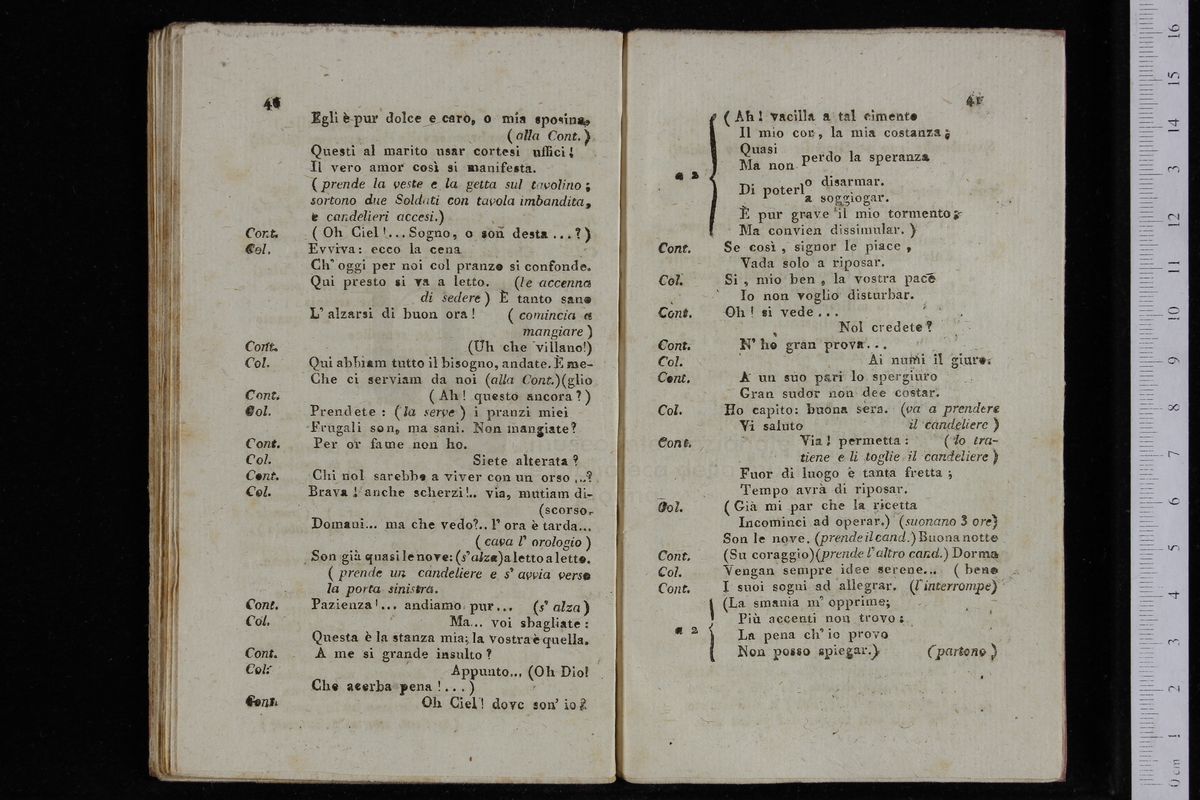 40
Egli è pur dolce e caro, o mia sposina,
(alla Cont.)
Questi al marito usar cortesi ufficj!
Il vero amor così si manifesta.
(prende la veste e la getta sul tavolino;
sortono due Soldati con tavola imbandita,
e candelieri accesi.)
Cont. (Oh Ciel!... Sogno, o son desta...?)
Col. Evviva: ecco la cena
Ch'oggi per noi col pranzo si confonde.
Qui presto si va a letto. (le accenna
di sedere) È tanto sano
L'alzarsi di buon ora! (comincia a
mangiare)
Cont. (Uh che villano!)
Col. Qui abbiam tutto il bisogno, andate. È me-
Che ci serviam da noi (alla Cont.)(glio
Cont. (Ah! questo ancora?)
Col. Prendete: (la serve) i pranzi miei
Frugali son, ma sani. Non mangiate?
Cont. Per or fame non ho.
Col. Siete alterata?
Cont. Chi nol sarebbe a viver con un orso...?
Col. Brava! anche scherzi!.. via, mutiam di-
(scorso.
Domani... ma che vedo?.. l'ora è tarda...
(cava l'orologio)
Son già quasi le nove: (s'alza) a letto a letto.
(prende un candeliere e s'avvia verso
la porta sinistra.
Cont. Pazienza!... andiamo pur... (s'alza)
Col. Ma... voi sbagliate:
Questa è la stanza mia; la vostra è quella.
Cont. A me si grande insulto?
Col. Appunto... (Oh Dio!
Che acerba pena!...)
Cont. Oh Ciel! dove son'io?
41
a 2
(Ah! vacilla a tal cimento
Il mio cor, la mia costanza;
Quasi
Ma non perdo la speranza
Di poterlo disarmar.
a soggiogar.
È pur grave il mio tormento;
Ma convien dissimular.)
Cont. Se così, signor le piace,
Vada solo a riposar.
Col. Si, mio ben, la vostra pace
Io non voglio disturbar.
Cont. Oh! si vede...
Nol credete?
Cont. N'ho gran prova...
Col. Ai numi il giuro.
Cont. A un suo pari lo spergiuro
Gran sudor non dee costar.
Col. Ho capito: buona sera. (va a prendere
Vi saluto il candeliere)
Cont. Via! permetta: (lo trat-
tiene e li toglie il candeliere)
Fuor di luogo è tanta fretta;
Tempo avrà di riposar.
Col. (Già mi par che la ricetta
Incominci ad operar.) (suonano 3 ore)
Son le nove. (prende il cand.) Buona notte
Cont. (Su coraggio) (prende l'altro cand.) Dorma
Col. Vengan sempre idee serene... (bene
Cont. I suoi sogni ad allegrar. (l'interrompe)
a 2
(La smania m'opprime;
Più accenti non trovo:
La pena ch'io provo
Non posso spiegar.) (partono)
0 cm 1 2 3 4 5 6 7 8 9 10 11 12 13 14 15 16